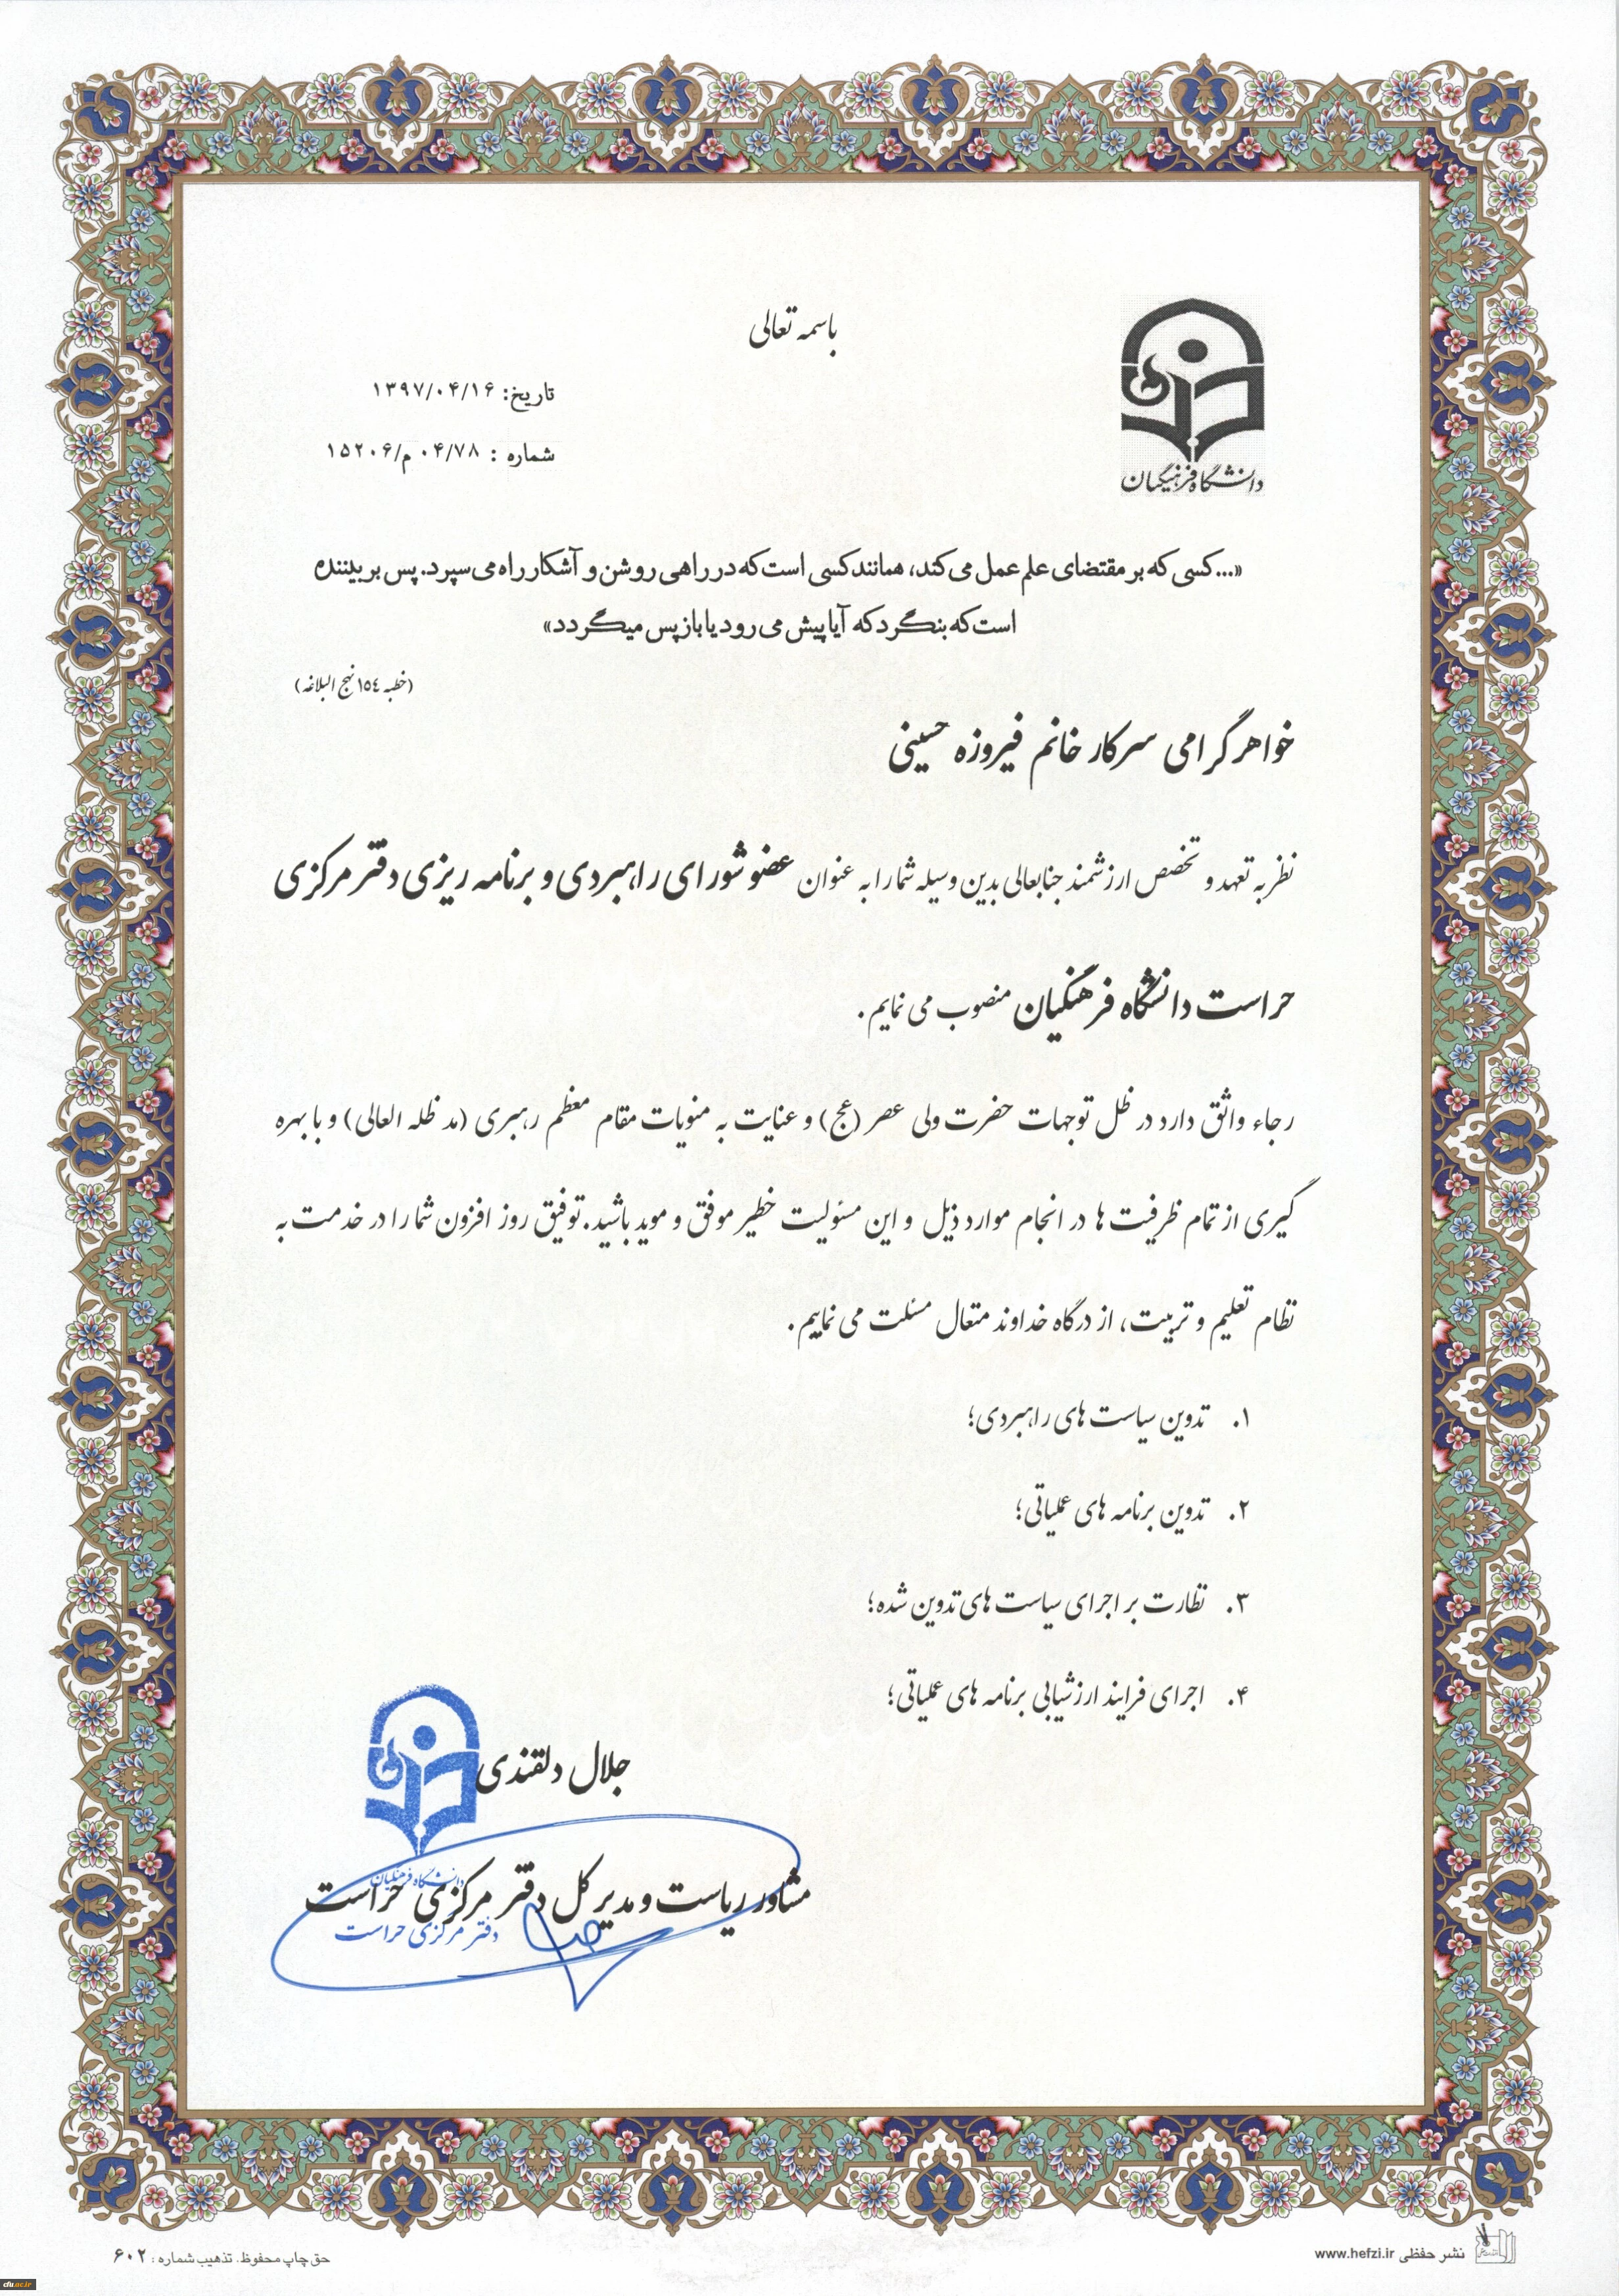 باسمه تعالی
تاریخ: ۱۳۹۷/۰۴/۱۶
شماره : ۰۴/۷۸ م/۱۵۲۰۶
دانشگاه فرهنگیان
«...کسی که بر مقتضای علم عمل می کند، همانند کسی است که در راهی روشن و آشکار راه می سپرد. پس بر بیننده
است که بنگرد که آیا پیش می رود یا باز پس میگردد»
(خطبه ١٥٤ نهج البلاغه)
خواهر گرامی سرکار خانم فیروزه حسینی
نظر به تعهد و تخصص ارزشمند جنابعالی بدین وسیله شما را به عنوان عضو شورای راهبردی و برنامه ریزی دفتر مرکزی
حراست دانشگاه فرهنگیان منصوب می نمایم.
رجاء واثق دارد در ظل توجهات حضرت ولی عصر (عج) و عنایت به منویات مقام معظم رهبری (مد ظله العالی) و با بهره
گیری از تمام ظرفیت ها در انجام موارد ذیل و این مسئولیت خطیر موفق و موید باشید. توفیق روز افزون شما را در خدمت به
نظام تعلیم و تربیت، از درگاه خداوند متعال مسئلت می نماییم.
۱. تدوین سیاست های راهبردی؛
۲. تدوین برنامه های عملیاتی؛
۳. نظارت بر اجرای سیاست های تدوین شده؛
۴. اجرای فرایند ارزشیابی برنامه های عملیاتی؛
جلال دلقندی
دانشگاه فرهنگیان
مشاور ریاست و مدیر کل دفتر مرکزی حراست
دفتر مرکزی حراست
نشر حفظی www.hefzi.ir
حق چاپ محفوظ. تذهیب شماره : ۶۰۲
cfu.ac.ir